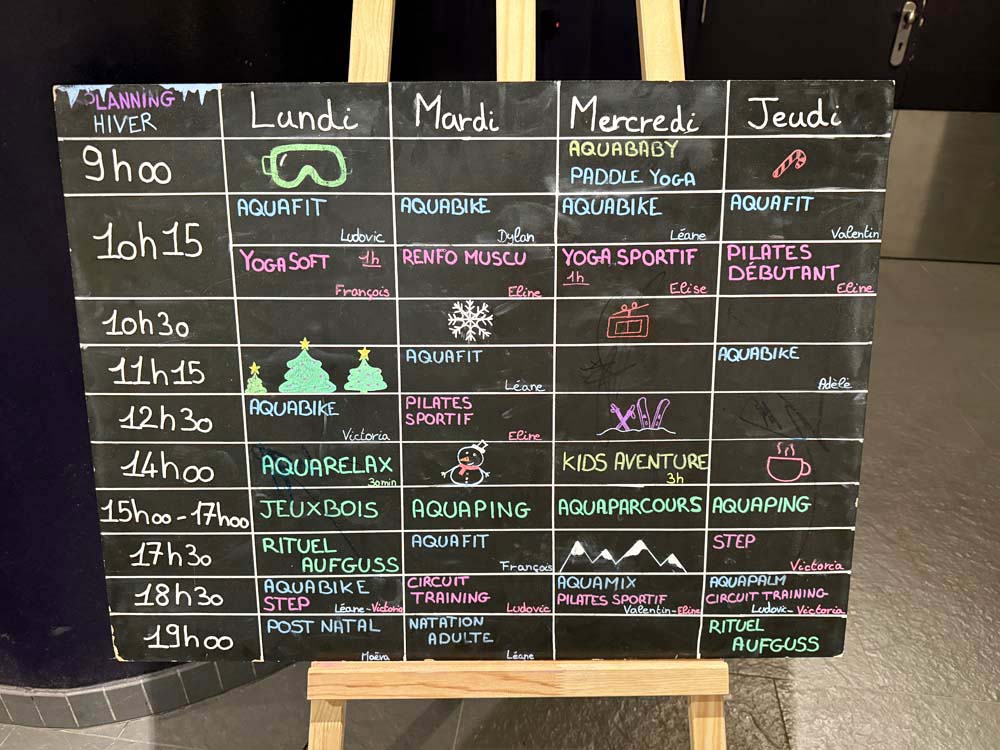 PLANNING
HIVER
Lundi
Mardi
Mercredi
Jeudi
9h00
AQUABABY
PADDLE YOGA
10h15
AQUAFIT
Ludovic
AQUABIKE
Dylan
AQUABIKE
Léane
AQUAFIT
Valentin
YOGA SOFT 1h
François
RENFO MUSCU
Eline
YOGA SPORTIF
1h Elise
PILATES
DÉBUTANT
Eline
10h30
11h15
AQUAFIT
Léane
AQUABIKE
Adèle
12h30
AQUABIKE
Victoria
PILATES
SPORTIF
Eline
14h00
AQUARELAX
30min
KIDS AVENTURE
3h
15h00-17h00
JEUX BOIS
AQUAPING
AQUAPARCOURS
AQUAPING
17h30
RITUEL
AUFGUSS
AQUAFIT
François
STEP
Victoria
18h30
AQUABIKE
STEP Léane-Victoria
CIRCUIT
TRAINING Ludovic
AQUAMIX
PILATES SPORTIF
Valentin-Eline
AQUAPALM
CIRCUIT TRAINING
Ludovic-Victoria
19h00
POST NATAL
Maëva
NATATION
ADULTE
Léane
RITUEL
AUFGUSS